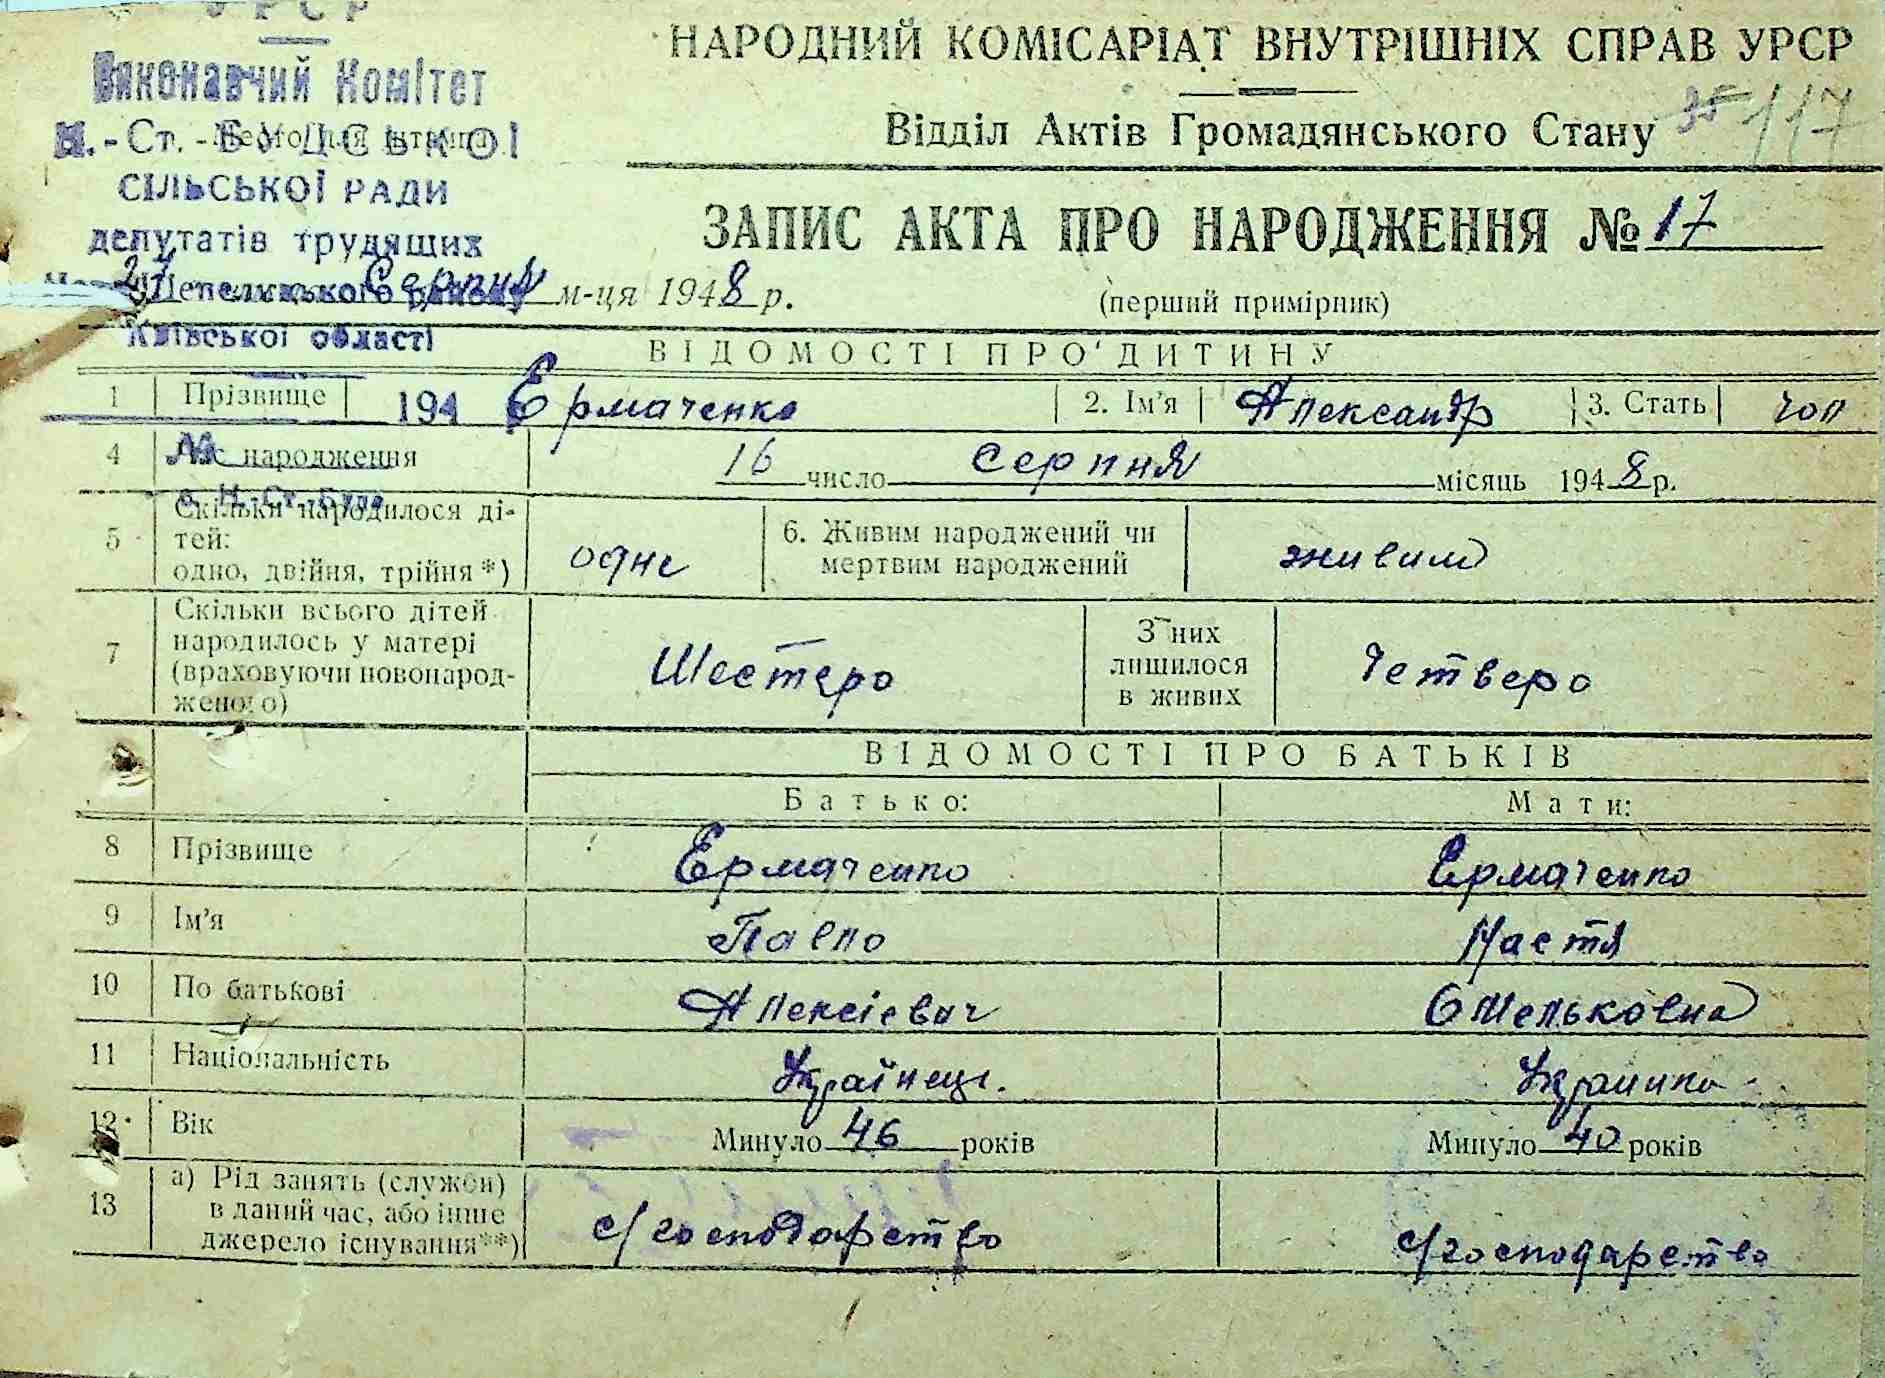 УРСР
Виконавчий Комітет
Н.-Ст.-БУДСЬКОЇ
СІЛЬСЬКОЇ РАДИ
депутатів трудящих
Київської області
194
№
с. Н.-Ст.-Буда
НАРОДНИЙ КОМІСАРІАТ ВНУТРІШНІХ СПРАВ УРСР
Відділ Актів Громадянського Стану
35 117
ЗАПИС АКТА ПРО НАРОДЖЕННЯ № 17
27 Серпня м-ця 1948 р.
(перший примірник)
ВІДОМОСТІ ПРО ДИТИНУ
1 Прізвище Ермаченко 2. Ім'я Александр 3. Стать чол
4 Час народження 16 число серпня місяць 1948 р.
5 Скільки народилося ді-
тей:
одно, двійня, трійня*) одне
6. Живим народжений чи
мертвим народжений живим
7 Скільки всього дітей
народилось у матері
(враховуючи новонарод-
женого) Шестеро
З них
лишилося
в живих Четверо
ВІДОМОСТІ ПРО БАТЬКІВ
Батько: Мати:
8 Прізвище Ермаченко Ермаченко
9 Ім'я Павло Настя
10 По батькові Алексієвич Омельковна
11 Національність Українець. Украинка
12 Вік Минуло 46 років Минуло 40 років
13 а) Рід занять (служби)
в даний час, або інше
джерело існування**) с/господарство с/господарство